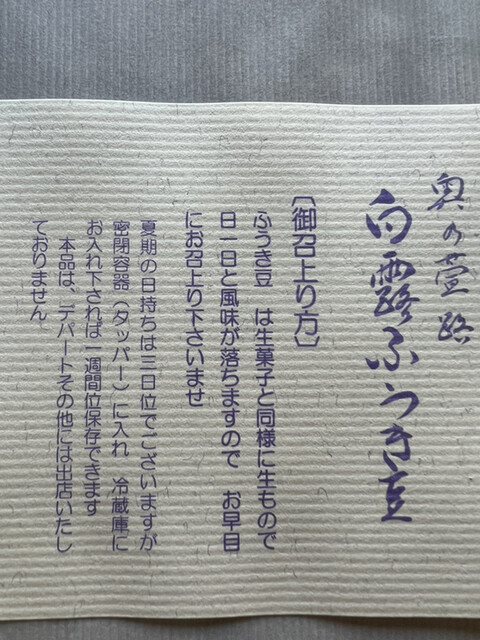 奥の萱路
白露ふうき豆
〔御召上り方〕
ふうき豆　は生菓子と同様に生もので
日一日と風味が落ちますので　お早目
にお召上り下さいませ
夏期の日持ちは三日位でございますが
密閉容器（タッパー）に入れ　冷蔵庫に
お入れ下されば一週間位保存できます
本品は、デパートその他には出店いたし
ておりません